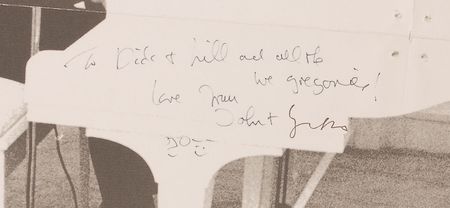 To Dick + Jill and all the
wee gregories!
love from
John + Yoko
70